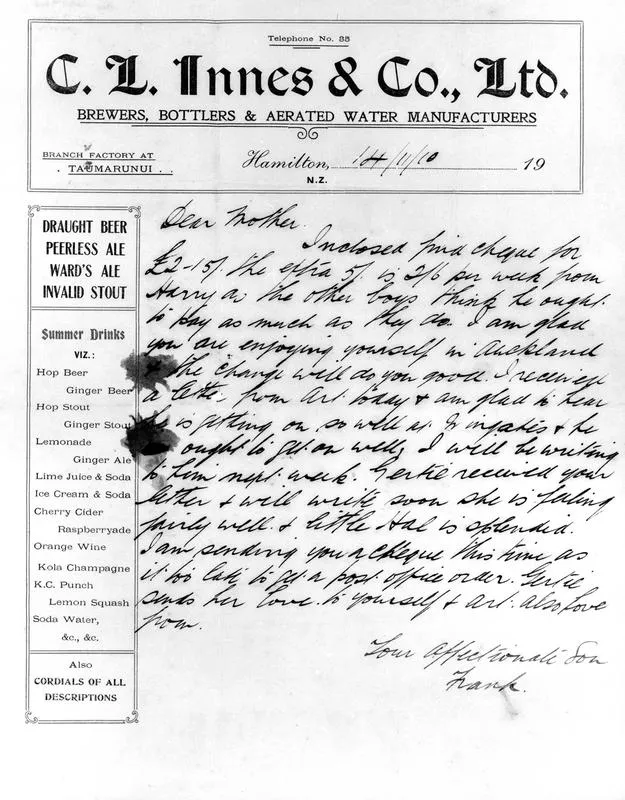 Telephone No. 35
C. L. Innes & Co., Ltd.
BREWERS, BOTTLERS & AERATED WATER MANUFACTURERS
BRANCH FACTORY AT
. TAUMARUNUI . .
Hamilton, 14/11/10 19
N.Z.
DRAUGHT BEER
PEERLESS ALE
WARD'S ALE
INVALID STOUT
Summer Drinks
VIZ.:
Hop Beer
Ginger Beer
Hop Stout
Ginger Stout
Lemonade
Ginger Ale
Lime Juice & Soda
Ice Cream & Soda
Cherry Cider
Raspberryade
Orange Wine
Kola Champagne
K.C. Punch
Lemon Squash
Soda Water,
&c., &c.
Also
CORDIALS OF ALL
DESCRIPTIONS
Dear Mother.
Inclosed find cheque for
£2-15/. the extra 5/. is 2/6 per week from
Harry as the other boys think he ought
to pay as much as they do. I am glad
you are enjoying yourself in Auckland
the change will do you good. I received
a letter from Art today & am glad to hear
he is getting on so well at & he
ought to get on well, I will be writing
to him next week. Gertie received your
letter & will write soon she is feeling
fairly well & little Hal is splendid.
I am sending you a cheque this time as
it too late to get a post office order. Gertie
sends her love to yourself & Art. also love
from.
Your Affectionate Son
Frank.